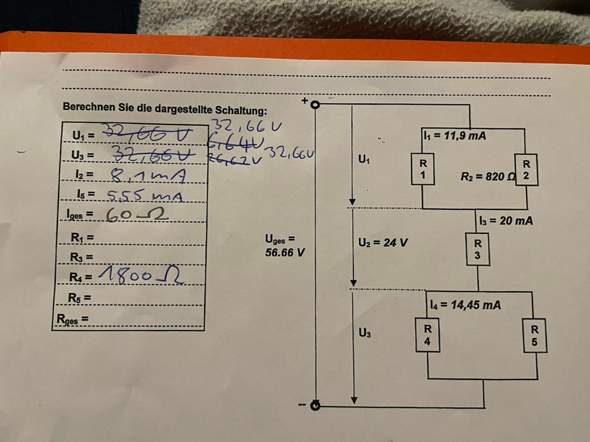 Berechnen Sie die dargestellte Schaltung:
U₁ = 32,66 V 32,66 V
6,64V
U₃ = 32,66 V 26,62V 32,66V
I₂ = 8,1 mA
I₅ = 5.55 mA
Iges = 60 Ω
R₁ =
R₃ =
R₄ = 1800 Ω
R₅ =
Rges =
+
I₁ = 11,9 mA
U₁
R
1
R₂ = 820 Ω
R
2
I₃ = 20 mA
Uges =
56.66 V
U₂ = 24 V
R
3
I₄ = 14,45 mA
U₃
R
4
R
5
–